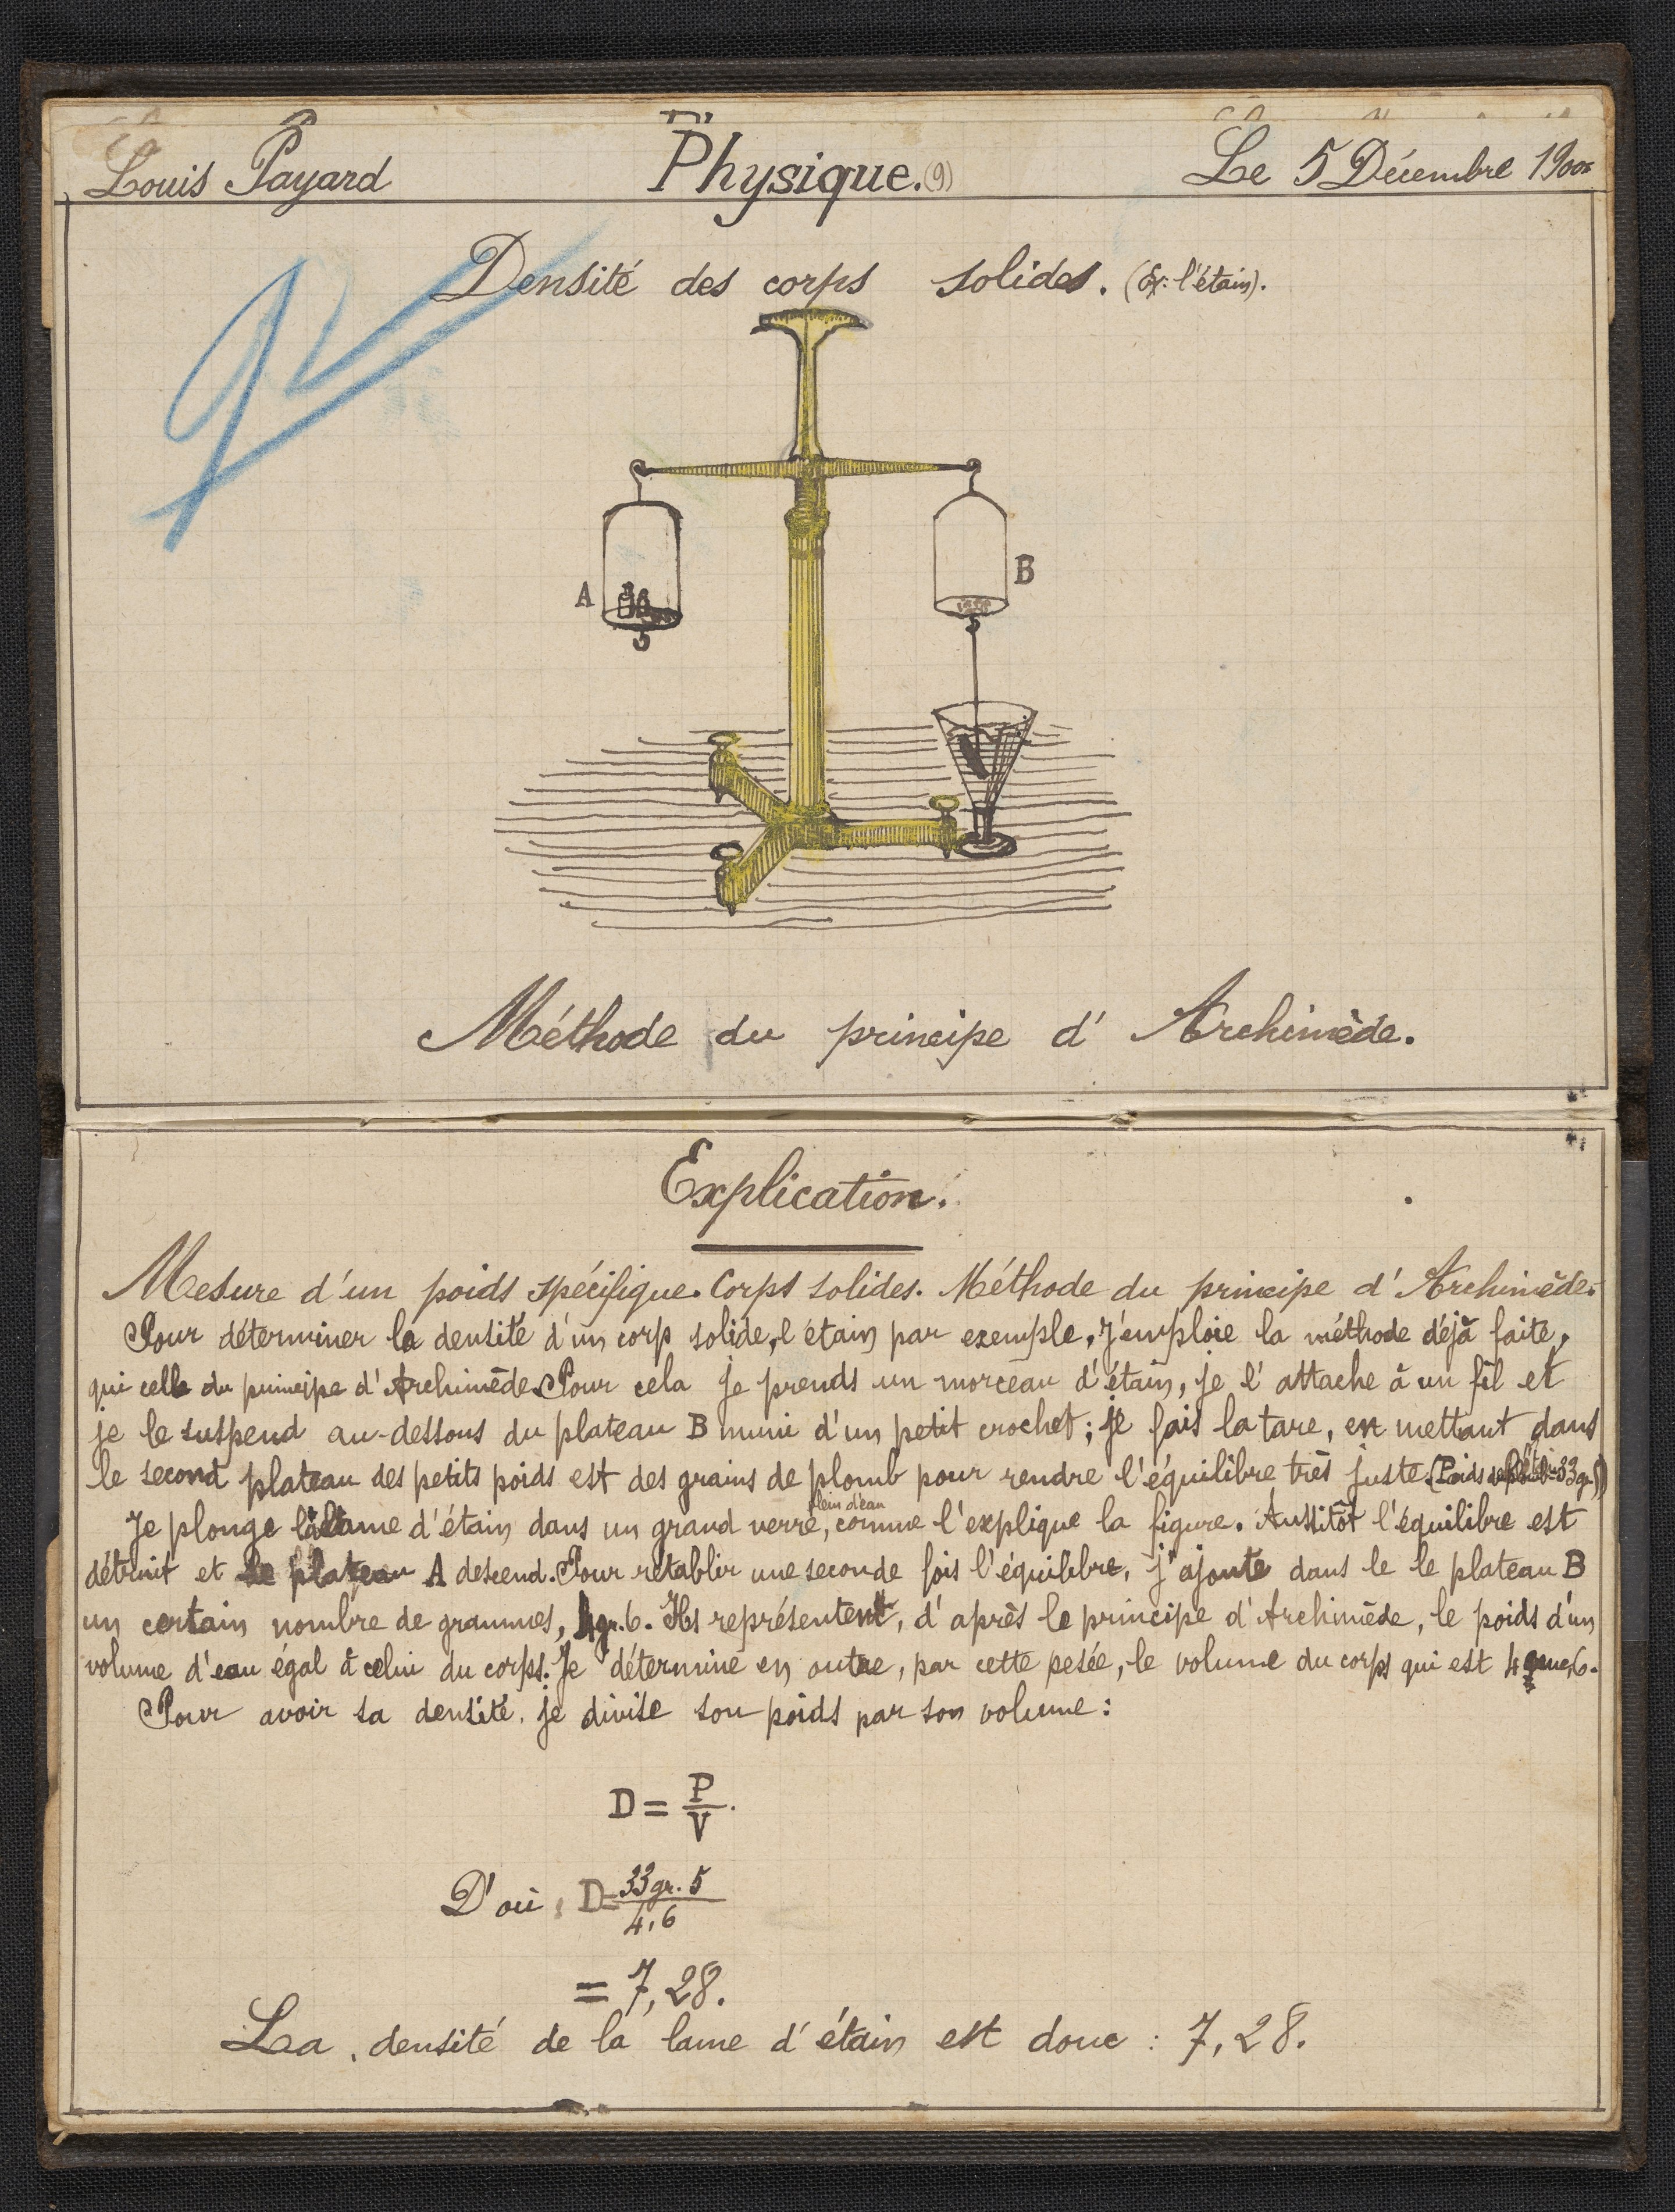 Louis Payard
Physique. (9)
Le 5 Décembre 1900
Densité des corps solides. (Ex: l'étain).
A
B
Méthode du principe d'Archimède.
Explication.
Mesure d'un poids spécifique. Corps solides. Méthode du principe d'Archimède.
Pour déterminer la densité d'un corps solide, l'étain par exemple, j'emploie la méthode déjà faite,
qui celle du principe d'Archimède. Pour cela je prends un morceau d'étain, je l'attache à un fil et
je le suspend au-dessous du plateau B muni d'un petit crochet; je fais la tare, en mettant dans
le second plateau des petits poids est des grains de plomb pour rendre l'équilibre très juste. (Poids de 33 gr. 5)
Je plonge la lame d'étain dans un grand verre, plein d'eau comme l'explique la figure. Aussitôt l'équilibre est
détruit et le plateau A descend. Pour rétablir une seconde fois l'équilibre, j'ajoute dans le le plateau B
un certain nombre de grammes, 4gr.6. Ils représentent, d'après le principe d'Archimède, le poids d'un
volume d'eau égal à celui du corps. Je détermine en outre, par cette pesée, le volume du corps qui est 4 6.
Pour avoir sa densité, je divise son poids par son volume:
D = P/V.
D'où, D = 33gr.5/4,6
= 7,28.
La densité de la lame d'étain est donc : 7,28.